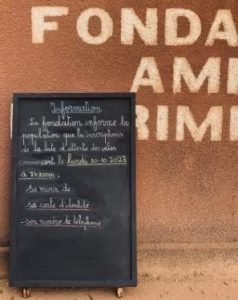 FONDA
AMI
RIM
Information
La fondation informe la
population que les inscriptions
de la liste d'attente des
commencent le lundi 30-10-2023
à
- sa carte d'identité
- son numéro de téléphone